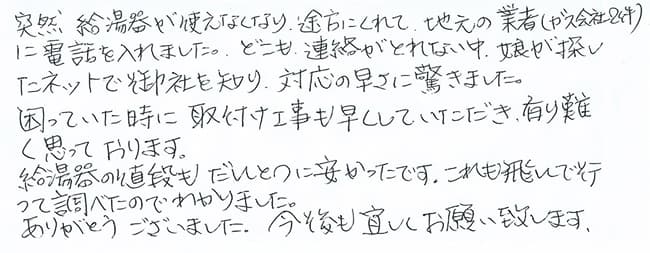 突然 給湯器が使えなくなり、途方にくれて、地元の業者(ガス会社2件)
に電話を入れました。どこも、連絡がとれない中、娘が探し
たネットで御社を知り、対応の早さに驚きました。
困っていた時に 取付け工事も早くしていただき、有り難
く思って おります。
給湯器の値段も だんとつに安かったです。これも飛
って調べたのでわかりました。
ありがとう ございました。今後も宜しくお願い致します。